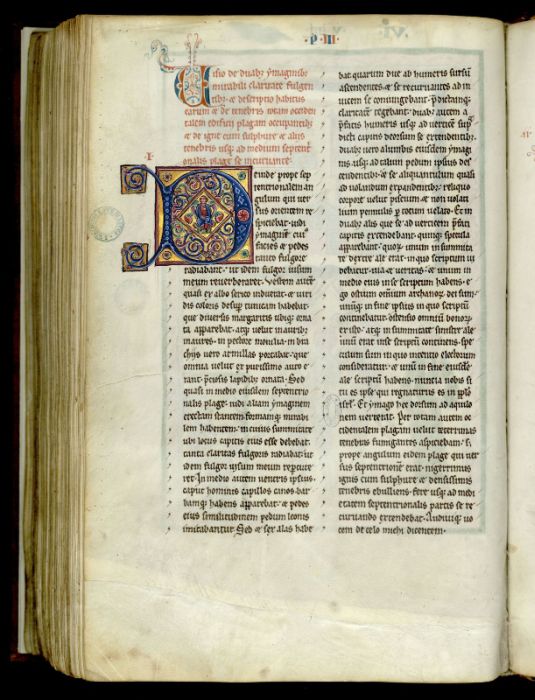 P III
Uisio de duabꝫ ymaginibꝫ
mirabili claritate fulgen
tibꝫ ⁊ descriptio habitus
earum ⁊ de tenebris totam occiden
talem ⁊dificii plagam occupantibꝫ
⁊ de igne cum sulphure ⁊ aliis
tenebris usqꝫ ad medium septent̾
onalis plage se incuruante.
I
Deinde prope sep
tentrionalem an
gulum qui uer
sus orientem re
spiciebat uidi
ymagines cui
facies ⁊ pedes
tanto fulgore
radiabant. ut idem fulgor uisum
meum reuerberaret. Vestem aute͞
quasi ex albo serico induebat. ⁊ uiri
dis coloris desup͛ tunicam habebat.
que diuersis margaritis ubiqꝫ orna
ta apparebat. atqꝫ uelut in auribꝫ
inaures. in pectore monilia. in bra
chiis uero armillas portabat. que
omnia uelut ex purissimo auro e
rant. p͛ciosis lapidibꝫ ornata. Sed
quasi in medio eiusdem septentrio
nalis plage. uidi aliam ymaginem
erectam stantem formamqꝫ mirabi
lem habentem. in cuius summitate
ubi locus capitis eius esse debebat.
tanta claritas fulgoris radiabat. ut
idem fulgor uisum meum rep͛cute
ret. In medio autem uentris ipsius.
caput hominis capillos canos bar
bamqꝫ habens apparebat. ⁊ pedes
eius similitudinem pedum leonis
imitabantur. Sed ⁊ sex alas habe
bat. quarum due ab humeris sursu͞
ascendentes ⁊ se recuruantes ad in
uicem se coniungebant.
claritatem tegebant. Due autem a
p͛fatis humeris usqꝫ ad uerticem p͛
dicti capitis deorsum se extendentibꝫ.
Duabꝫ uero a lumbis eiusdem ymagi
nis usqꝫ ad talum pedum ipsius des
cendentibꝫ. ⁊ se aliquantulum quasi
ad uolandum expandentibꝫ. reliquo
corpore uelut piscium ⁊ non uolati
lium pennulis p͛ totum uelato. Et in
duabꝫ alis que se ad uerticem p͛fati
capitis extendebant. quinqꝫ specula
apparebant. quoꝝ unum in summita
te dextre ale erat in quo scriptum ui
debatur. uia ⁊ ueritas. ⁊ unum in
medio eius in se scriptum habens. e
go ostium omnium archanoꝝ dei sum.
unu͞qꝫ in fine ipsius in quo scriptu͞
continebatur. ostensio omnium bonoꝝ
existo. atqꝫ in summitate sinistre ale
unu͞ erat in se scriptu͞ continens. spe
culum sum in quo intentio electorum
consideratur. ⁊ unu͞ in fine eiusde͞
ale scriptu͞ habens. nuncia nobis si
tu es ipse qui regnaturus es in ip͞lo
isrl̾. Et ymago hec dorsum ad aquilo
nem uertebat. Per totam autem oc
cidentalem plagam uelut teterrimas
tenebras fumigantes aspiciebam. s͛
prope angulum eidem plage qui uer
sus septentrione͞ erat. nigerrimus
ignis cum sulphure ⁊ densissimis
tenebris ebulliens. fere usqꝫ ad medi
etatem septentrionalis partis se re
curuando extendebat. Audiuiqꝫ uo
cem de celo michi dicentem.